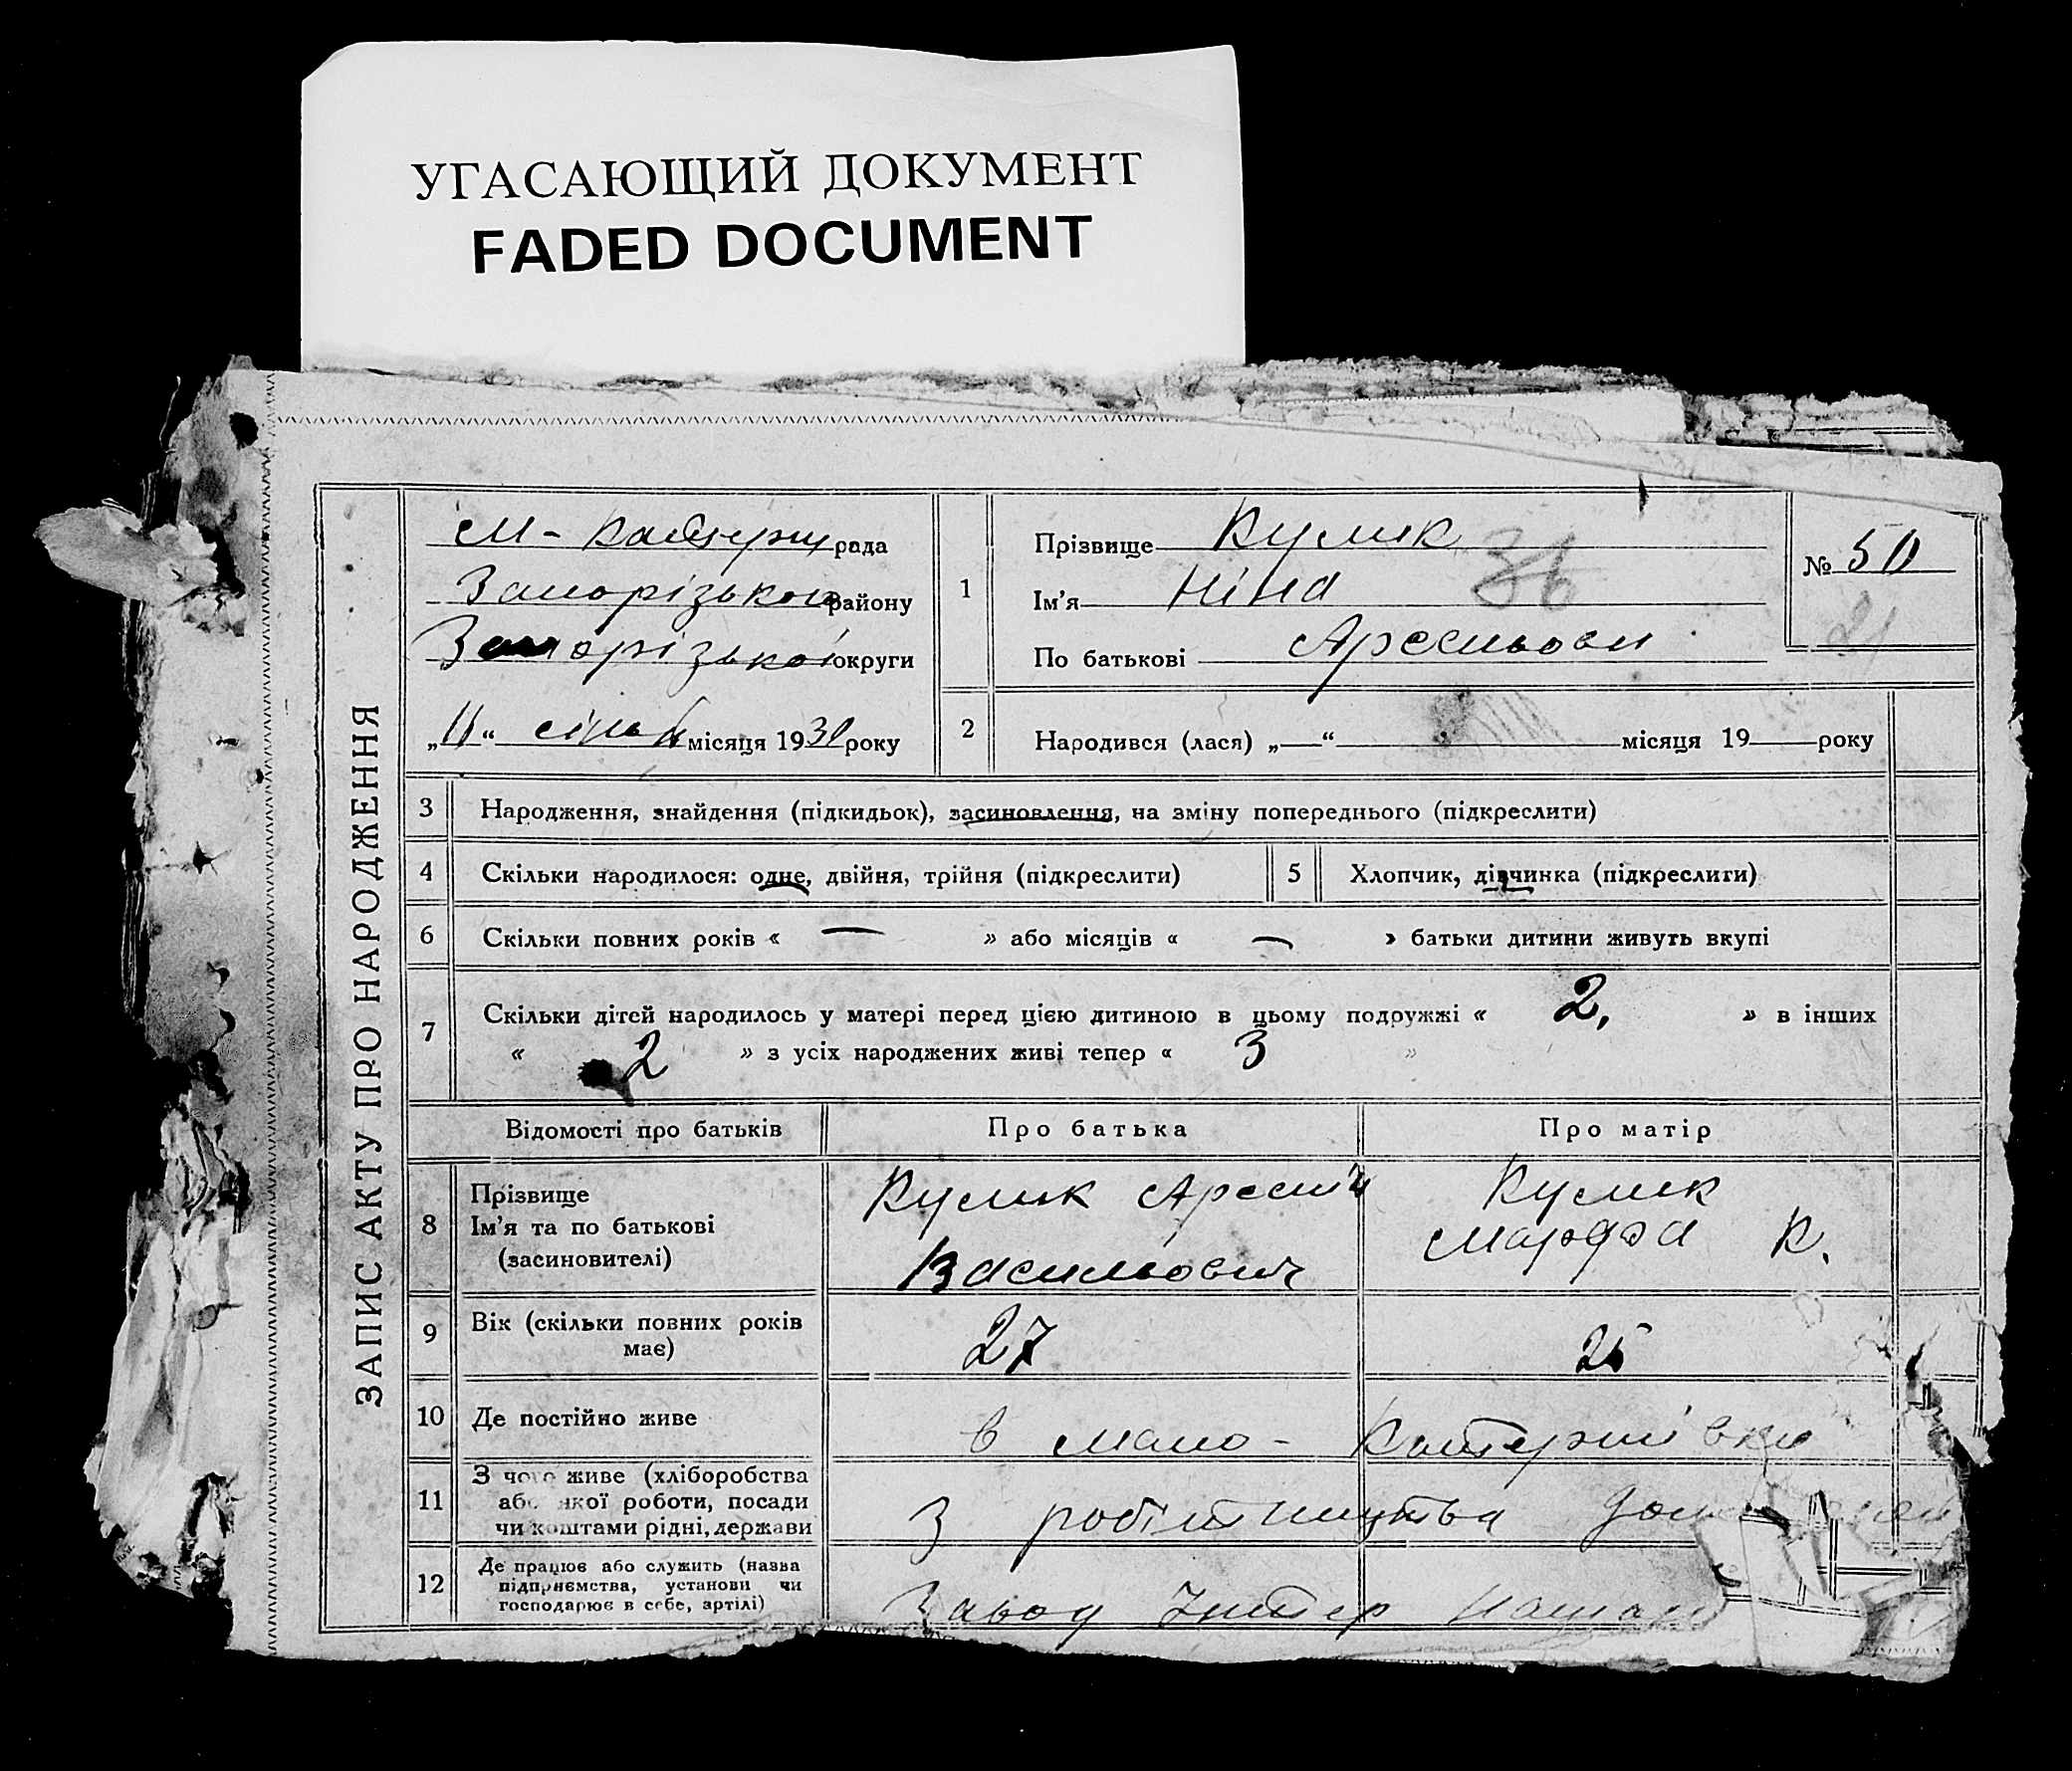 УГАСАЮЩИЙ ДОКУМЕНТ
FADED DOCUMENT
ЗАПИС АКТУ ПРО НАРОДЖЕННЯ
М-Катери рада
Запорізького району
Запорізької округи
„11“ січня місяця 1930 року
1
Прізвище Кулик
Ім’я Ніна
По батькові Арсеньови
36
№ 50
21
2
Народився (лася) „—“ місяця 19 року
3 Народження, знайдення (підкидьок), засиновлення, на зміну попереднього (підкреслити)
4 Скільки народилося: одне, двійня, трійня (підкреслити)
5 Хлопчик, дівчинка (підкреслити)
6 Скільки повних років « — » або місяців « — » батьки дитини живуть вкупі
7 Скільки дітей народилось у матері перед цією дитиною в цьому подружжі « 2, » в інших
« 2 » з усіх народжених живі тепер « 3 »
Відомості про батьків Про батька Про матір
8 Прізвище
Ім’я та по батькові
(засиновителі)
Кулик Арсеній
Васильович
Кулик
Марфа К.
9 Вік (скільки повних років
має)
27
25
10 Де постійно живе
в Мало-Катеринівки
11 З чого живе (хліборобства
або якої роботи, посади
чи коштами рідні, держави
З робітництва
12 Де працює або служить (назва
підприємства, установи чи
господарює в себе, артілі)
Завод